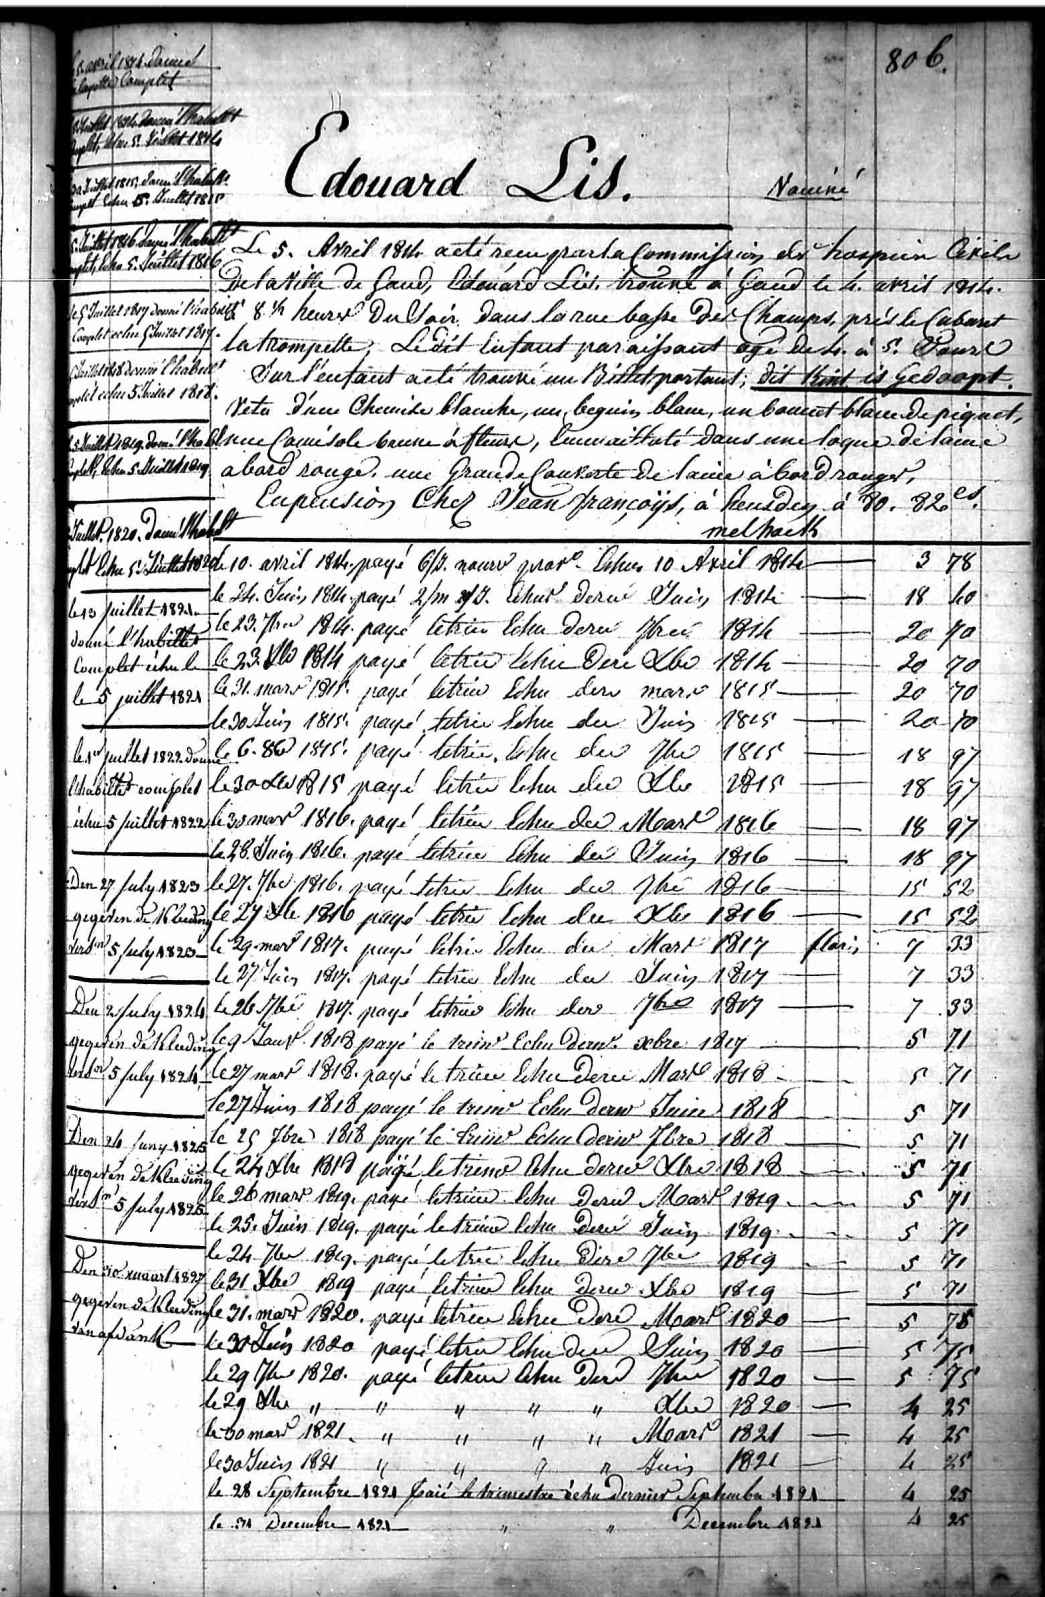 806.
Edouard Lis.
Vaciné
Le 5. Avril 1814 a été reçu par la Commission des hospices Civils
De la Ville de Gand, Edouard Lis. trouvé à Gand le 4. avril 1814.
à 8 ½ heures Du Soir dans la rue basse des Champs, près le Cabaret
la trompette, Le dit Enfant paraissant agé de 4. à 5. Jours
Sur l'enfant a été trouvé un Billet portant; dit Kint is Gedoopt.
Vetu d'une Chemise blanche, un beguin blanc, un bonnet blanc de piquet,
une Camisole brune à fleurs, Emmaillotté dans une loque de laine
a bord rouge. une Grande Couverte de laine à bord rouge,
En pension Chez Jean françoijs, à heusden, à 80. 82 es.
le 10. avril 1814. payé 6/J. nourr prov. Echus 10 Avril 1814 — 3 78
le 24. Juin 1814. payé 2/m Echus derni Juin 1814 — 18 40
le 23. 7bre 1814. payé le trim Echu dern 7bre 1814 — 20 70
le 23. Xbre 1814 payé le trim Echu der Xbre 1814 — 20 70
le 31. mars 1815. payé le trim Echu dern mars 1815 — 20 70
le 30 Juin 1815. payé le trim Echu der Juin 1815 — 20 70
le 6. 8b 1815. payé le trim. Echu der 7bre 1815 — 18 97
le 30 Xbre 1815 payé le trim Echu der Xbre 1815 — 18 97
le 30 mars 1816. payé le trim Echu der Mars 1816 — 18 97
le 28. Juin 1816. payé le trim Echu der Juin 1816 — 18 97
le 27. 7bre 1816. payé le trim Echu der 7bre 1816 — 15 52
le 27 Xbre 1816 payé le trim Echu der Xbre 1816 — 15 52
le 29. mars 1817. payé le trim Echu der Mars 1817 floris 7 33
le 27 Juin 1817. payé le trim Echu der Juin 1817 — 7 33
le 26 7bre 1817. payé le trim Echu der 7bre 1817 — 7 33
le 9 Janv. 1818 payé le trim Echu dern. xbre 1817 — 5 71
le 27 mars 1818. payé le trim Echu dern Mars 1818 — 5 71
le 27 Juin 1818 payé le trim Echu dern Juin 1818 — 5 71
le 25 7bre 1818 payé le trim Echu dern 7bre 1818 — 5 71
le 24 Xbre 1818 payé, le trim Echu dern Xbre 1818 — 5 71
le 26 mars 1819. payé le trim Echu dern Mars 1819 — 5 71
le 25. Juin 1819. payé le trim Echu dern Juin 1819 — 5 71
le 24 7bre 1819. payé le trim Echu dern 7bre 1819 — 5 71
le 31 Xbre 1819 payé le trim Echu dern Xbre 1819 — 5 71
le 31. mars 1820. payé le trim Echu dern Mars 1820 — 5 75
le 30 Juin 1820 payé le trim Echu der Juin 1820 — 5 75
le 29 7bre 1820. payé le trim Echu dern 7bre 1820 — 5 75
le 29 Xbre " " " " " Xbre 1820 — 4 25
le 30 mars 1821. " " " " Mars 1821 — 4 25
le 30 Juin 1821 " " " " Juin 1821 — 4 25
le 28 Septembre 1821 Paié le trimestre échu dernier Septembre 1821 4 25
le 31 Decembre 1821 — " " Decembre 1821 4 25
5 avril 1814 Donné
la layette Complet
5 Juillet 1814 donné l'habillt
complet, Echu 5. Juillet 1814
Juillet 1815. donné l'habillt
complet Echu 5. Juillet 1815
5. Juillet 1816 donné l'habillt
complet, Echu 5. Juillet 1816
le 5 Juillet 1817 donné l'habillt
Complet echu 5 Juillet 1817.
Juillet 1818 donné l'habillt
complet echu 5 Juillet 1818.
5 Juillet 1819 donné l'habillt
complet, Echu 5. Juillet 1819
Juillet 1820. Donné l'habillt
complet Echu 5. Juillet 1820
le 13 juillet 1821
donné l'habillt
Complet échu le
le 5 juillet 1821
le 1er juillet 1822 donné
l'habillt complet
échu 5 juillet 1822
Den 27 July 1823
gegeven de Kleeding
vers.n 5 July 1823
Den 2 July 1824
gegeven de Kleeding
vers.n 5 July 1824
Den 24 Juny 1825
gegeven de Kleeding
vers.n 5 July 1825
Den 30 maart 1827
gegeven de Kleeding
van afdank